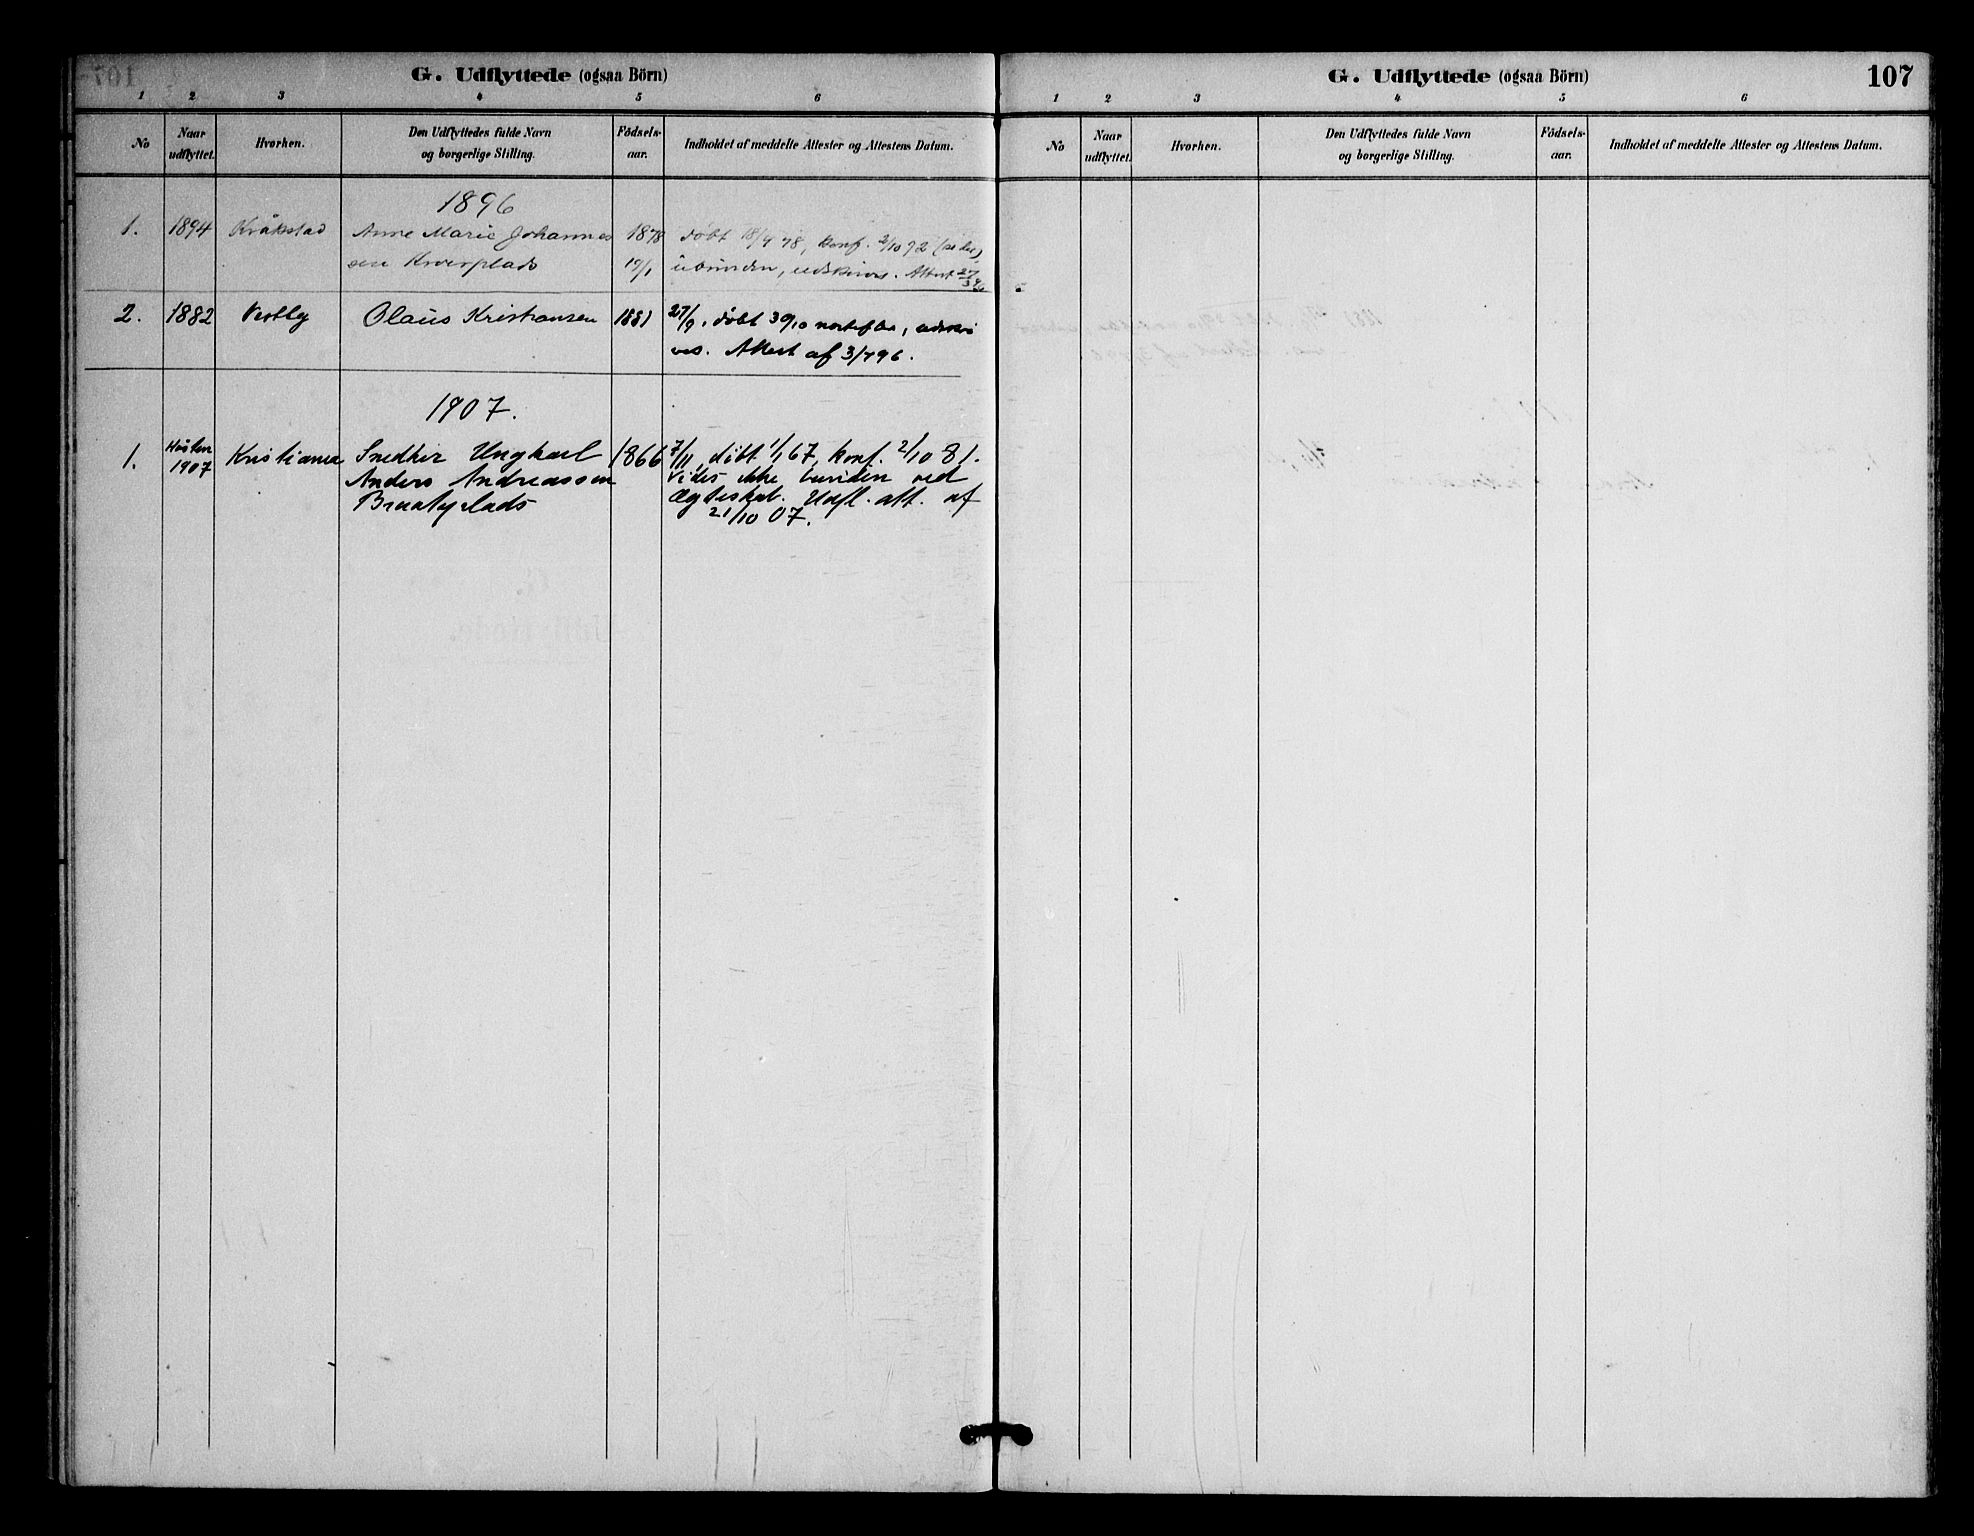 G. Udflyttede (ogsaa Börn)
1 2 3 4 5 6
No
Naar udflyttet.
Hvorhen.
Den Udflyttedes fulde Navn
og borgerlige Stilling.
Födsels-
aar.
Indholdet af meddelte Attester og Attestens Datum.
1896
1. 1894 Kråkstad Anne Marie Johannes 1878 døbt 18/4 78, konf. 2/10 92
sen 19/1 ubunden, udskrives. Attest 27/3 96
2. 1882 Vestby Olaus Kristiansen 1881 27/9, døbt 30/10 udskri
ves. Attest af 3/7 96.
1907.
1. Høsten Kristiania Snedker Ungkarl 1866 7/11, døbt 1/1 67, konf. 2/10 81.
1907 Anders Andreassen Vides ikke bunden ved
Braateplads Ægteskab. Udfl. att. af
21/10 07.
G. Udflyttede (ogsaa Börn)
107
1 2 3 4 5 6
No
Naar udflyttet.
Hvorhen.
Den Udflyttedes fulde Navn
og borgerlige Stilling.
Födsels-
aar.
Indholdet af meddelte Attester og Attestens Datum.